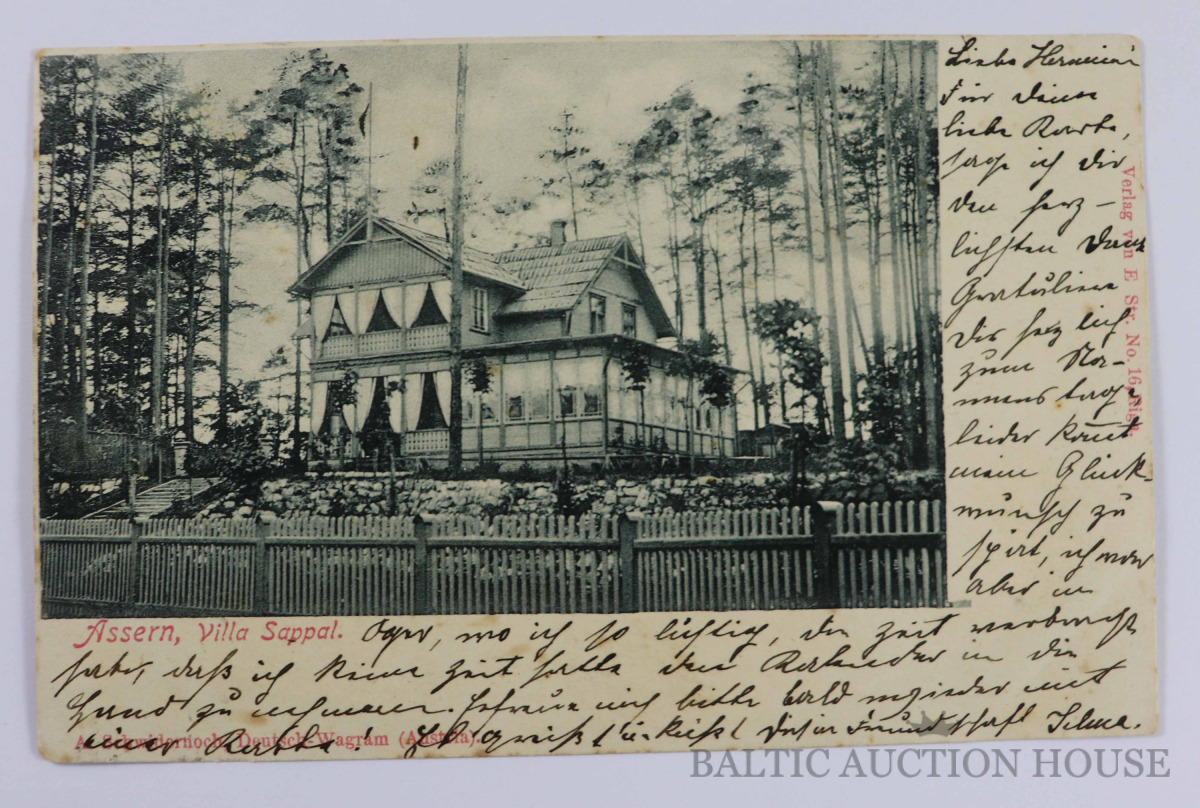 Liebe Hermine
Für deine
liebe Karte,
sage ich dir
den herz-
lichsten Dank
Gratuliere
dir herzlich
zum Na-
menstag
leider kommt
mein Glück-
wunsch zu
spät, ich war
aber in
Oger, wo ich so lustig, die Zeit verbracht
habe, daß ich keine Zeit hatte den Kalender in die
Hand zu nehmen. Erfreue mich bitte bald wieder mit
einer Karte! Es grüßt u. küßt dich in Freundschaft Selma.
Assern, Villa Sappal.
A. Schwidernoch, Deutsch-Wagram (Austria).
Verlag von E Str. No. 16 Riga.
BALTIC AUCTION HOUSE